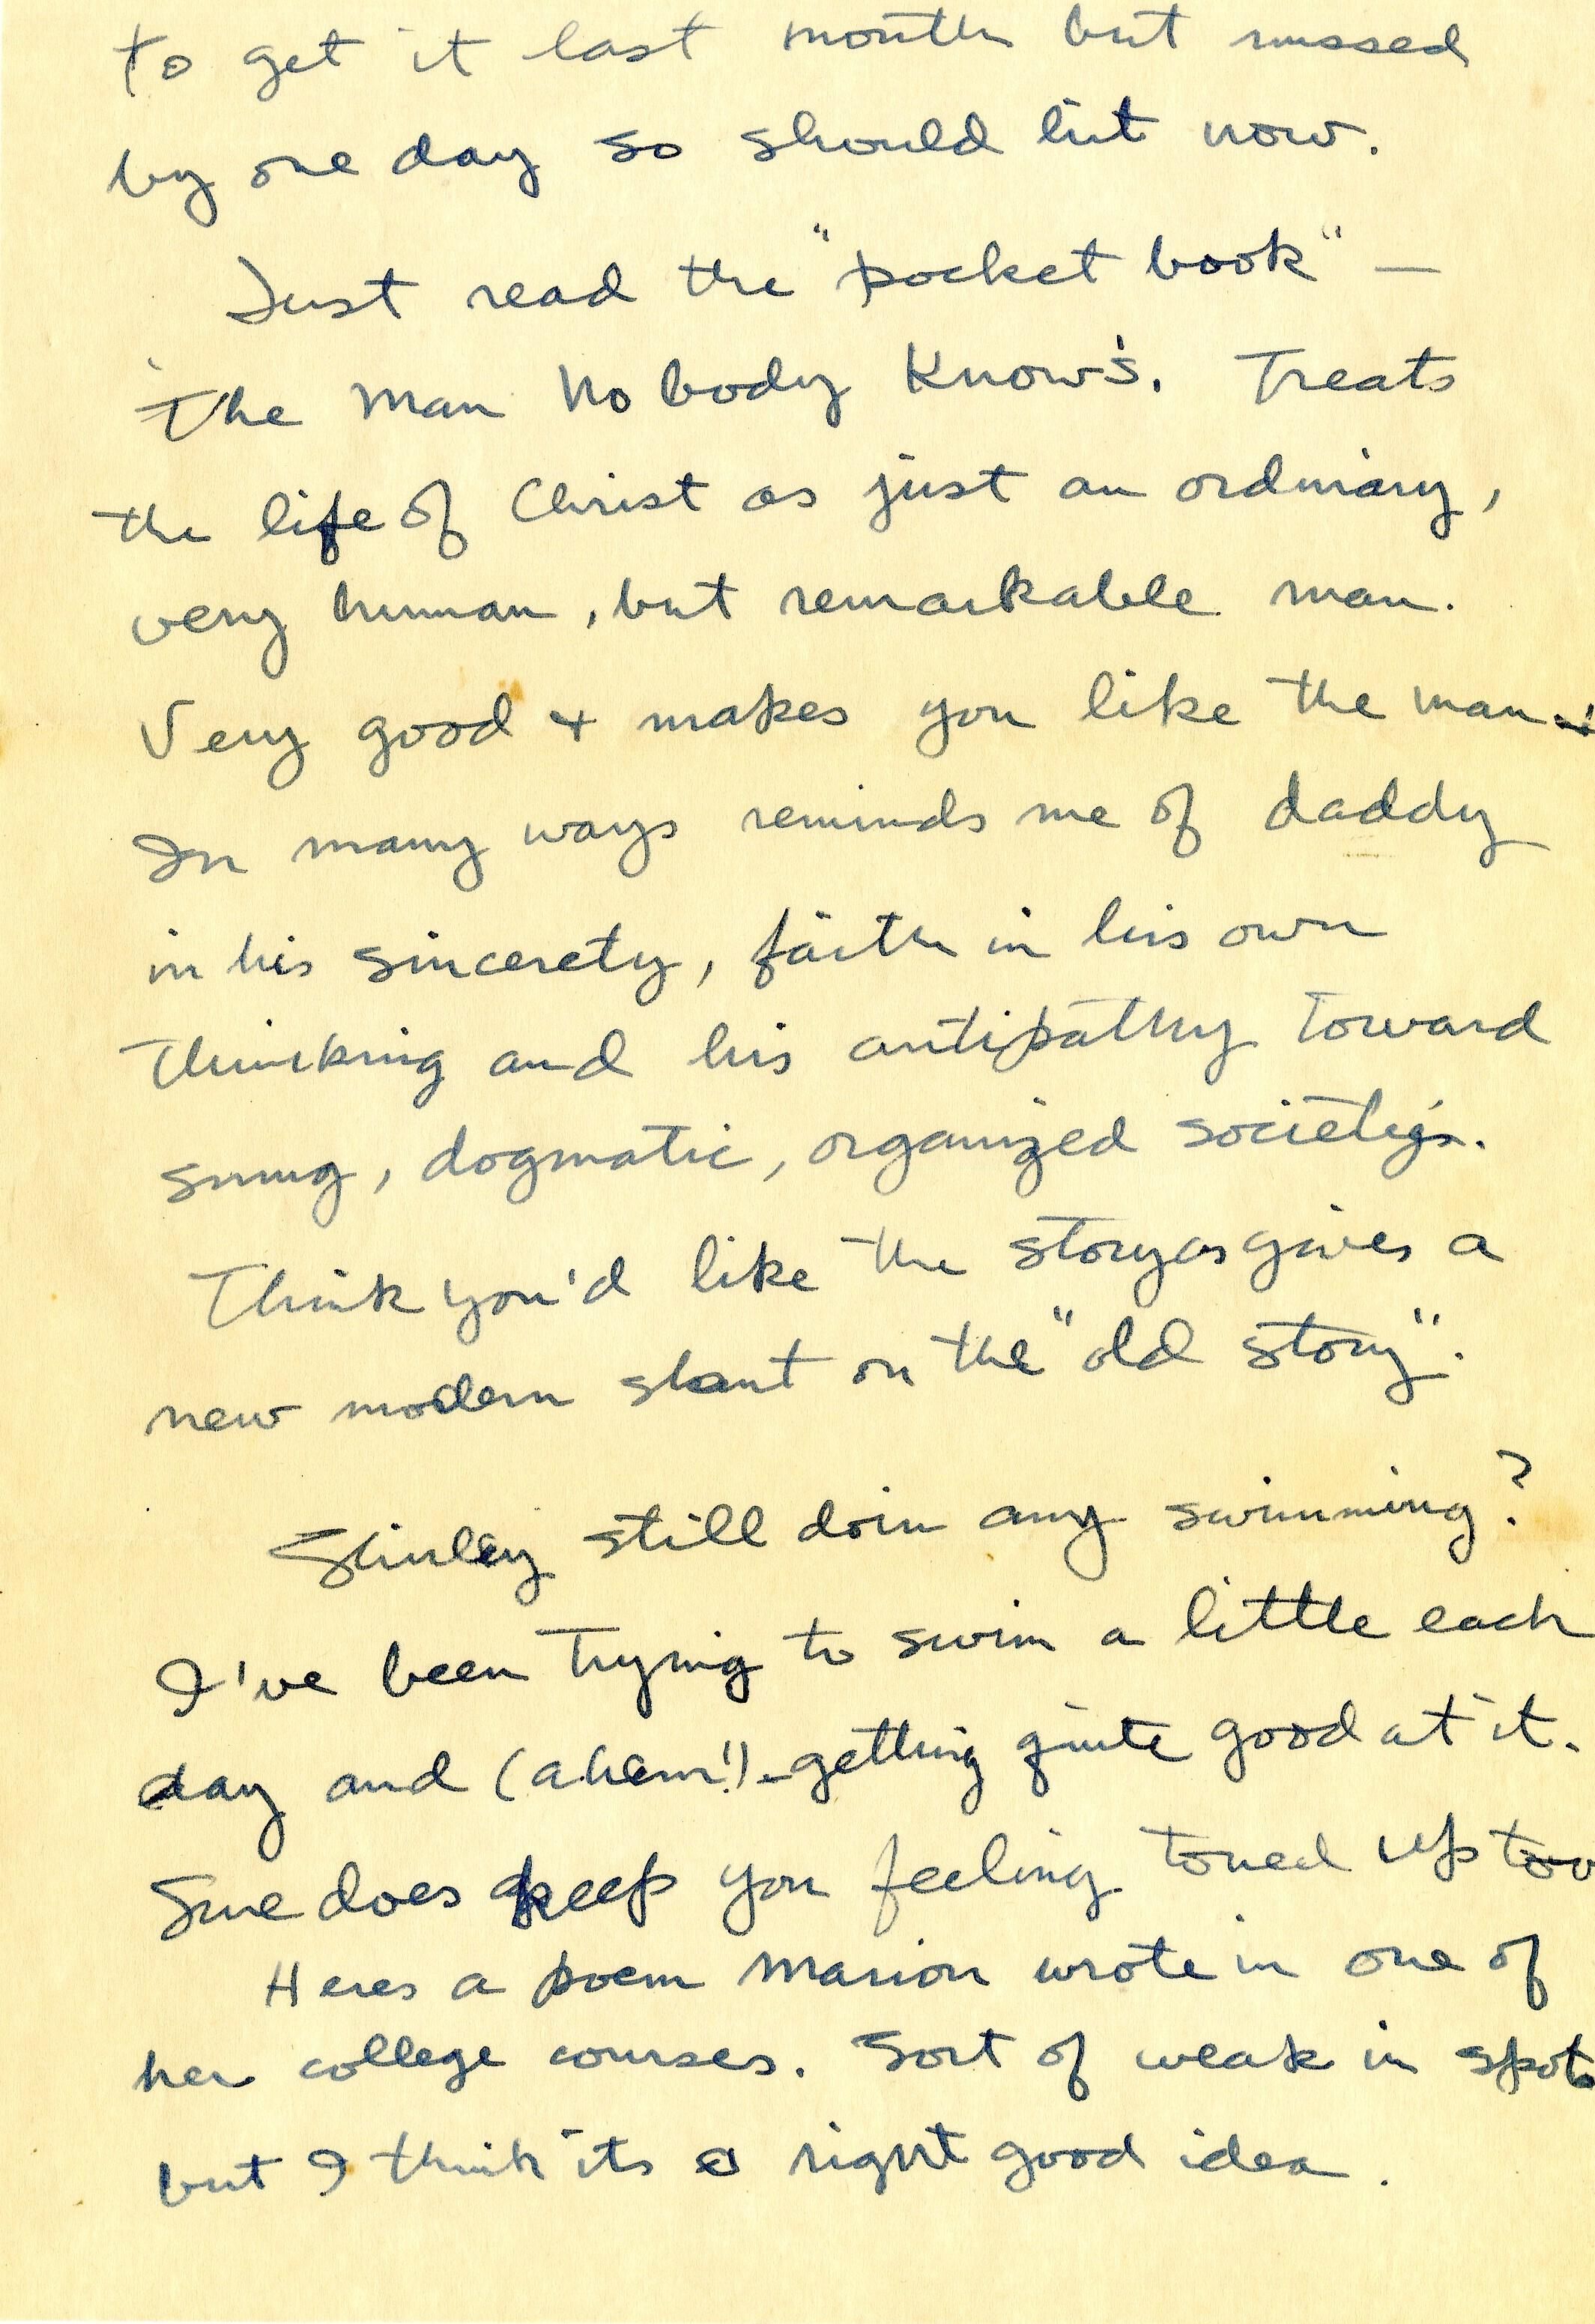 to get it last month but missed
by one day so should hit now.
Just read the "pocket book" —
'The Man Nobody Knows'. Treats
the life of Christ as just an ordinary,
very human, but remarkable man.
Very good + makes you like the man.
In many ways reminds me of daddy
in his sincerety, faith in his own
thinking and his antipathy toward
smug, dogmatic, organized societies.
Think you'd like the story as gives a
new modern slant on the "old story".
Shirley still doin any swimming?
I've been trying to swim a little each
day and (ahem!) - getting quite good at it.
Sure does keep you feeling toned up too
Heres a poem Marion wrote in one of
her college courses. Sort of weak in spots
but I think its a right good idea.